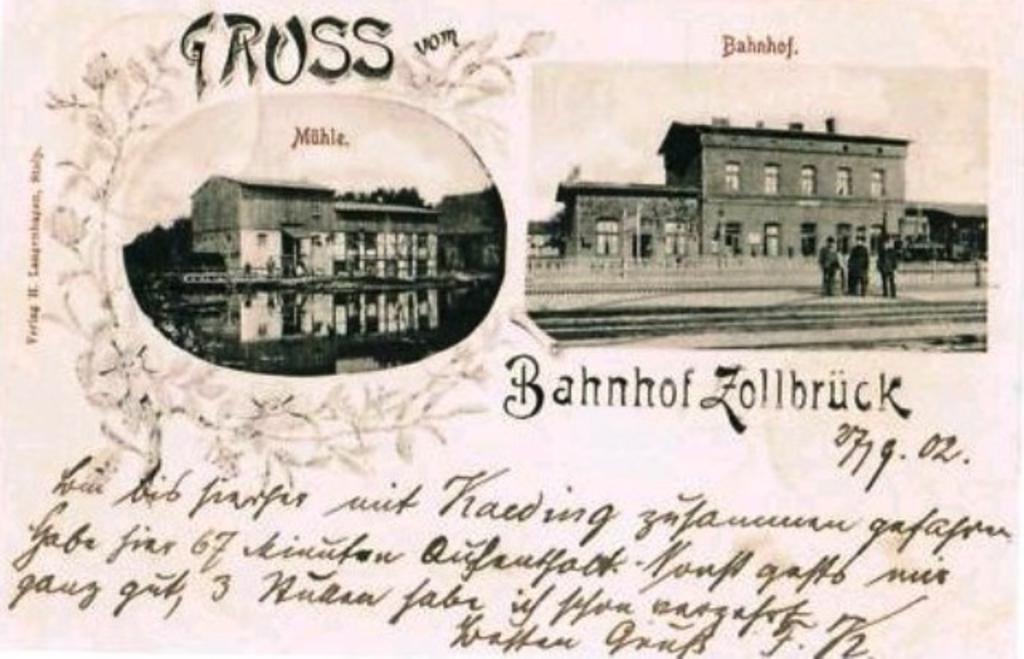 GRUSS vom
Mühle.
Bahnhof.
Verlag H. Langenhagen, Stolp.
Bahnhof Zollbrück
27/9. 02.
Bin bis hierher mit Kaeding zusammen gefahren
Habe hier 67 Minuten Aufenthalt. Sonst gehts mir
ganz gut, 3 Stullen habe ich schon verzehrt.
Besten Gruß